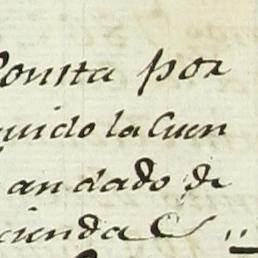 Consta por
uido la Cuen
andado de
cienda &